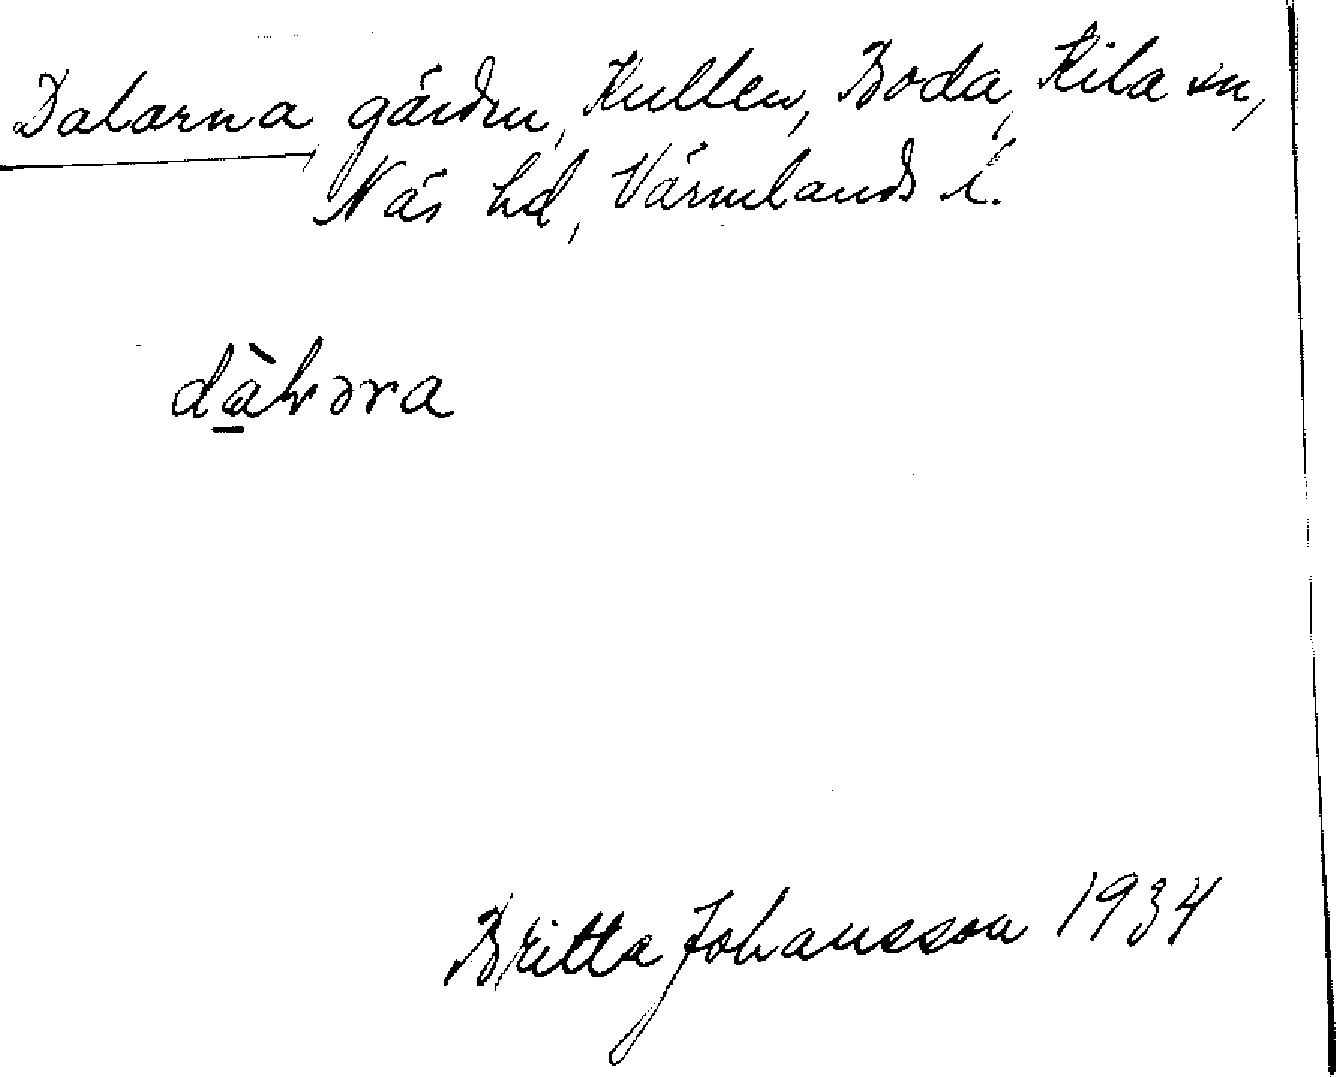 Dalarna gården, Kullen, Boda, Kila sn,
Näs hd, Värmlands l.
Britta Johansson 1934